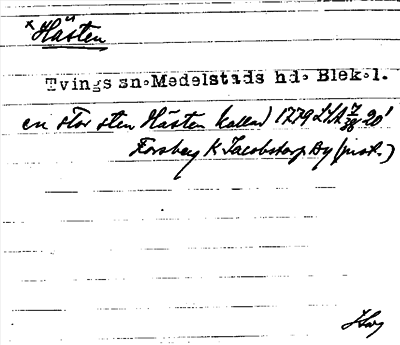 x Hästen
Tvings sn. Medelstads hd. Blek.l.
en stor sten Hästen kallad 1779 LSA 7/38 20'
Forsberg K Jacobstorp Ay (insk.)